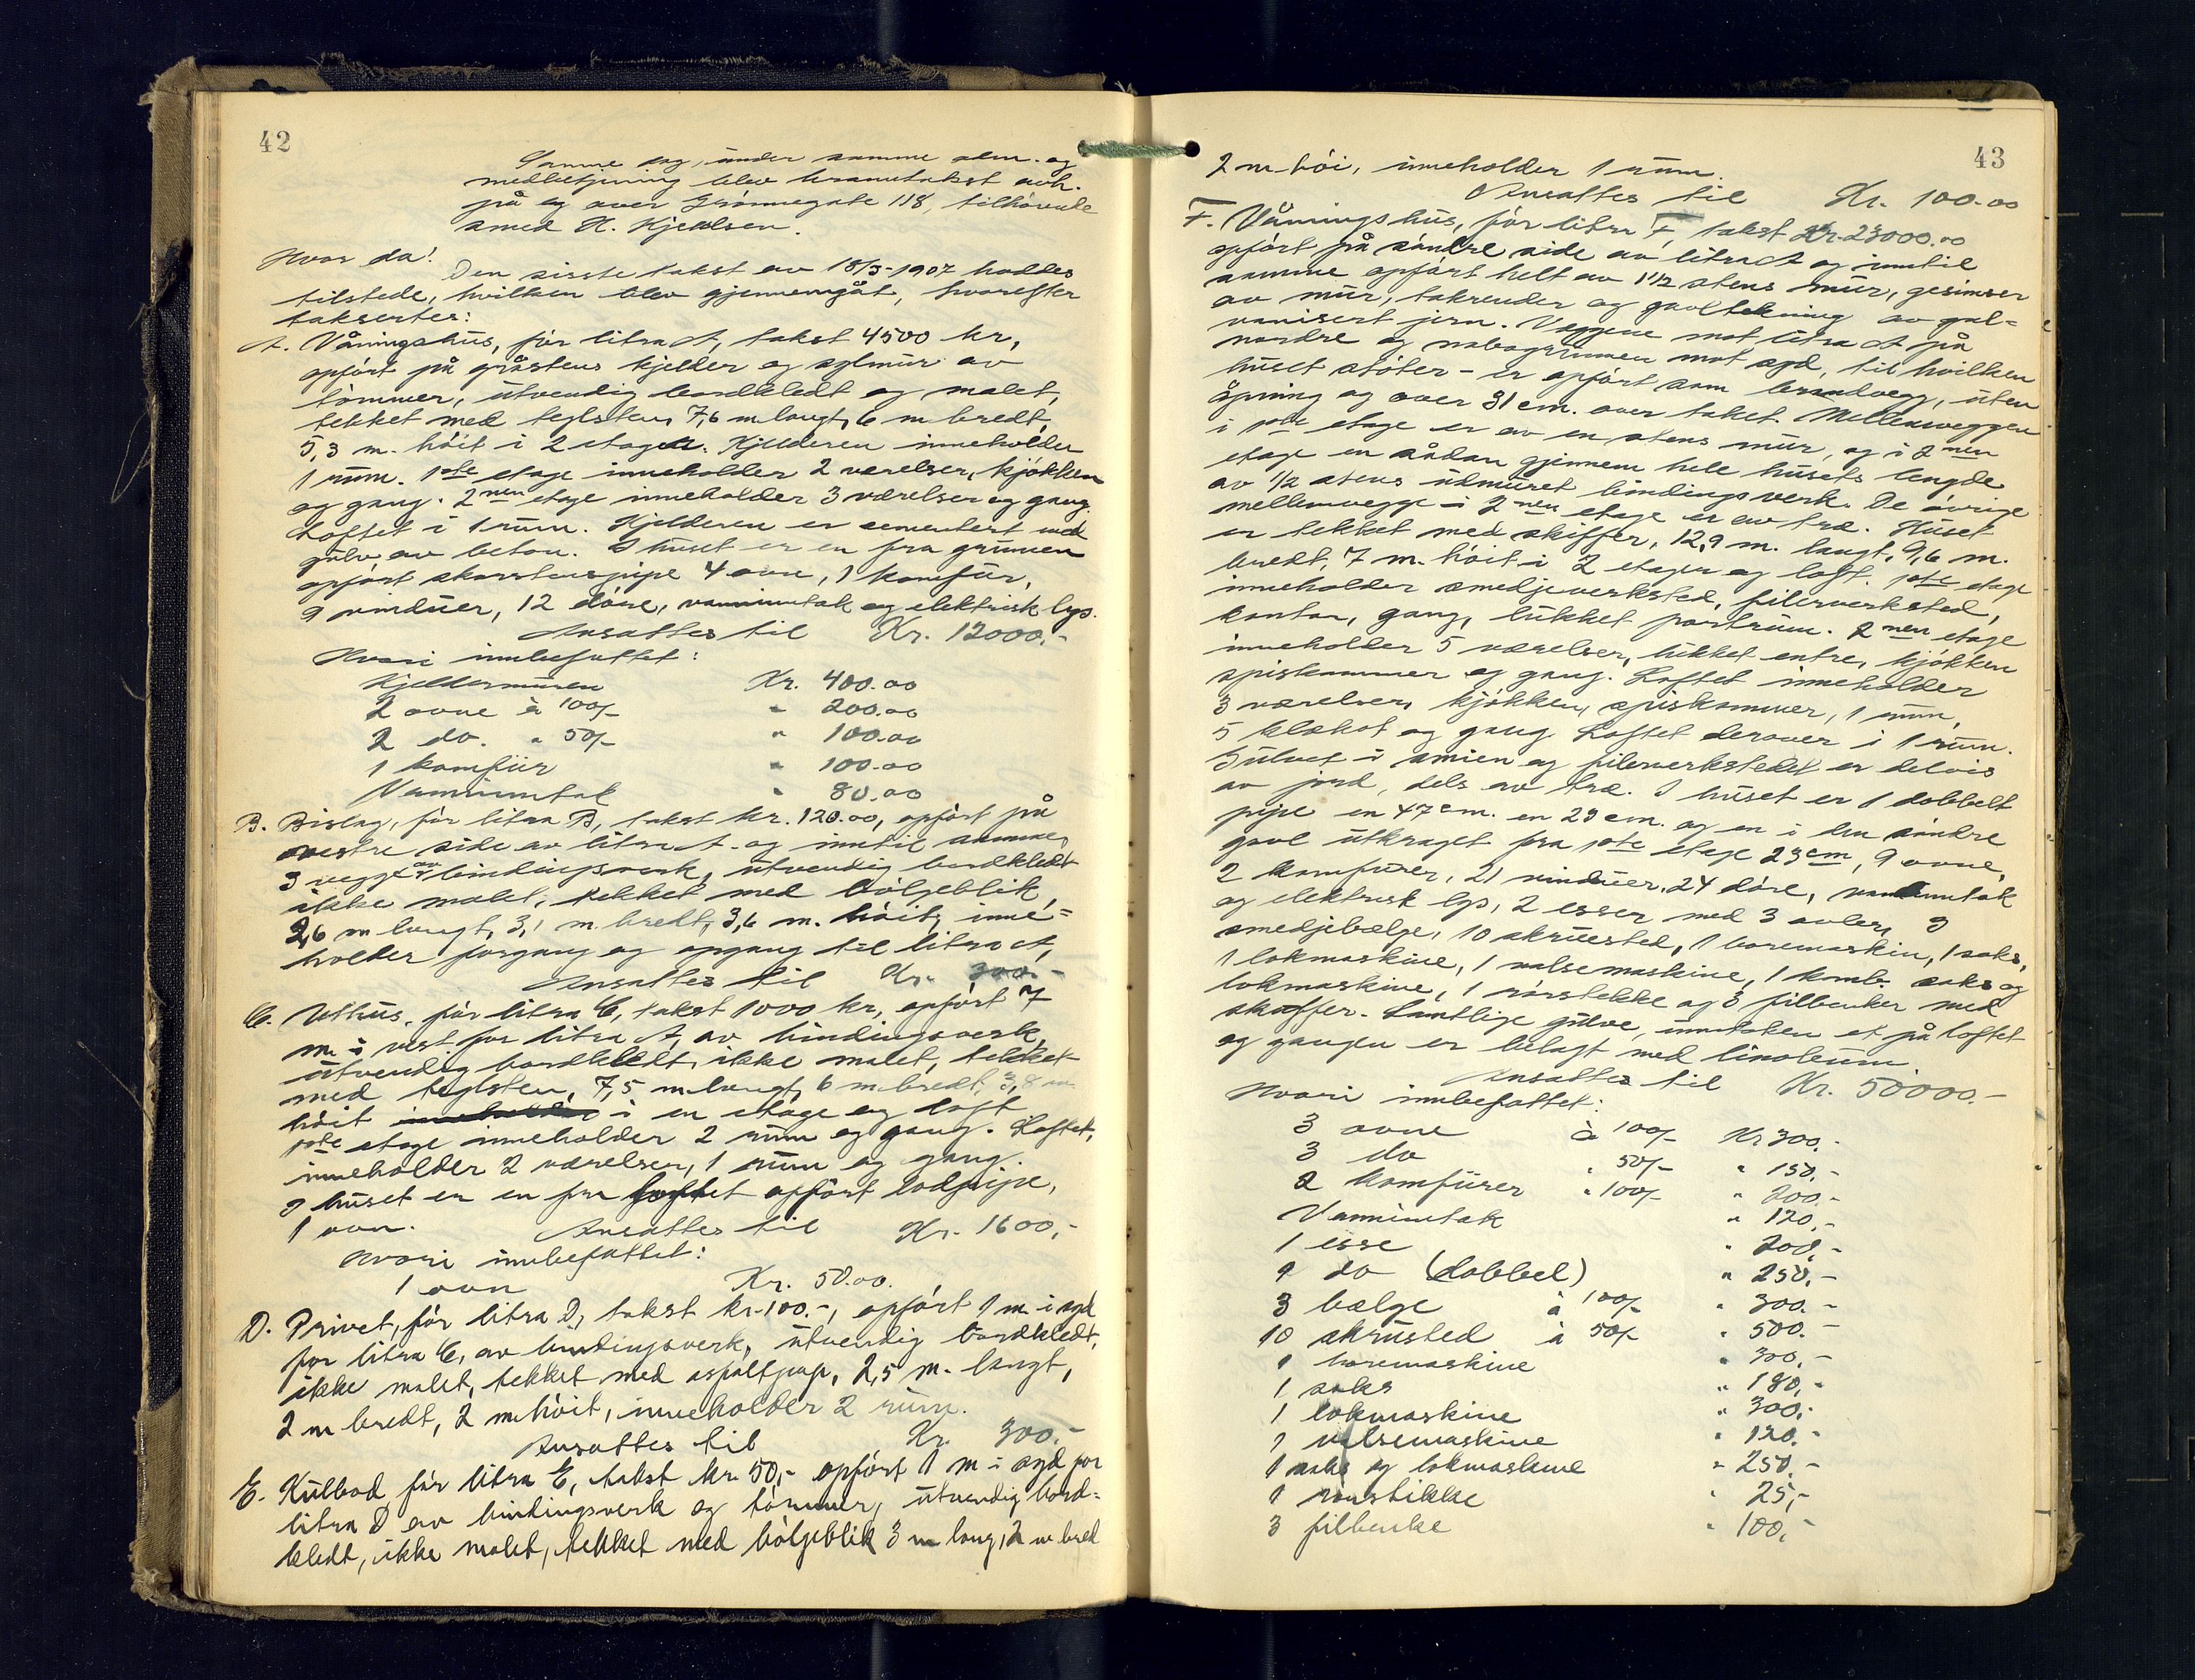 42
Samme dag, under samme adm. og
medbetjening blev branntakst avh.
på og over Grønnegate 118, tilhørende
smed H. Kjeldsen.
Hvor da!
Den sisste takst av 18/3-1907 haddes
tilstede, hvilken blev gjennemgåt, hvorefter
taksertes:
A. Våningshus, før litra A, takst 4500 kr,
opført på gråstens kjelder og sylmur av
tømmer, utvendig bordkledt og malet,
tekket med teglsten, 7,6 m langt, 6 m bredt,
5,3 m. høit i 2 etager. Kjelderen inneholder
1 rum. 1ste etage inneholder 2 værelser, kjøkken
og gang. 2nen etage inneholder 3 værelser og gang.
Loftet i 1 rum. Kjelderen er cementert med
gulv av beton. I huset er en fra grunnen
opført skorstenspipe 4 ovne, 1 komfur,
9 vinduer, 12 døre, vanninntak og elektrisk lys.
Ansattes til Kr. 12000.-
Hvori innbefattet:
Kjeldermuren Kr. 400.00
2 ovne à 100/- " 200.00
2 do. " 50/- " 100.00
1 komfur " 100.00
Vanninntak " 80.00
B. Bislag, før litra B, takst kr. 120.00, opført på
vestre side av litra A. og inntil samme,
3 vegge av bindingsverk, utvendig bordkledt
ikke malet, tekket med bølgeblik,
2,6 m langt, 3,1 m bredt, 3,6 m. høit, inne=
holder forgang og opgang til litra A,
Ansattes til Kr. 300.-
C. Uthus, før litra C, takst 1000 kr, opført 7
m i vest for litra A, av bindingsverk,
utvendig bordkledt, ikke malet, tekket
med teglsten, 7,5 m langt, 6 m bredt, 3,8 m
høit i en etage og loft
1ste etage inneholder 2 rum og gang. Loftet,
inneholder 2 værelser, 1 rum og gang.
I huset er en fra loftet opført lodpipe,
1 ovn. Ansattes til Kr. 1600.-
Hvori innbefattet:
1 ovn Kr. 50.00.
D. Privet, før litra D, takst kr. 100.-, opført 1 m i syd
for litra C, av bindingsverk, utvendig bordkledt,
ikke malet, tekket med asfaltpap, 2,5 m. langt,
2 m bredt, 2 m høit, inneholder 2 rum.
Ansattes til Kr. 300.-
E. Kulbod før litra E, takst kr. 50,- opført 1 m i syd for
litra D av bindingsverk og tømmer, utvendig bord-
kledt, ikke malet, tekket med bølgeblik 3 m lang, 2 m bred
43
2 m høi, inneholder 1 rum.
Ansattes til Kr. 100.00
F. Våningshus, før litra F, takst Kr. 23000.00
opført på søndre side av litra A og inntil
samme opført helt av 1 1/2 stens mur, gesimser
av mur, takrender og gavltekning av gal=
vanisert jern. Veggene mot litra A på
nordre og nabogrunnen mot syd, til hvilken
huset støter - er opført som brandvegg, uten
åpning og over 31 cm. over taket. Mellemveggen
i 1ste etage er av en stens mur, og i 2nen
etage en sådan gjennem hele husets lengde
av 1/2 stens utmuret bindingsverk. De øvrige
mellemvegge i 2nen etage er av træ. Huset
er tekket med skiffer, 12,9 m. langt, 9,6 m.
bredt, 7 m. høit i 2 etager og loft. 1ste etage
inneholder smedjeverksted, filerverksted,
kontor, gang, lukket portrum. 2nen etage
inneholder 5 værelser, lukket entre, kjøkken
spiskammer og gang. Loftet inneholder
3 værelser, kjøkken, spiskammer, 1 rum,
5 klækot og gang Loftet derover i 1 rum.
Gulvet i smien og filerverkstedet er delvis
av jord, dels av træ. I huset er 1 dobbelt
pipe en 47 cm. en 23 cm. og en i den søndre
gavl utkraget fra 1ste etage 23 cm, 9 ovne,
2 komfurer, 21 vinduer, 24 døre, vanninntak
og elektrisk lys, 2 esser med 3 avler, 3
smedjebælge, 10 skruested, 1 boremaskin, 1 saks,
1 lokmaskine, 1 valsemaskine, 1 komb. saks og
lokmaskine, 1 rørstekke og 3 filbenker med
skuffer. Samtlige gulve, unntaken et på loftet
og gangen er belagt med linoleum
Ansattes til Kr. 50000.-
Hvori innbefattet:
3 ovne à 100/- Kr 300.-
3 do " 50/- " 150.-
2 komfurer " 100/- " 200.-
Vanninntak " 120.-
1 esse " 200.-
1 do (dobbel) " 250.-
3 bælge à 100/- " 300.-
10 skrusted à 50/- " 500.-
1 boremaskine " 300.-
1 saks " 180.-
1 lokmaskine " 300.-
1 valsemaskine " 120.-
1 saks og lokmaskine " 250.-
1 rørstikke " 25,-
3 filbenke " 100.-